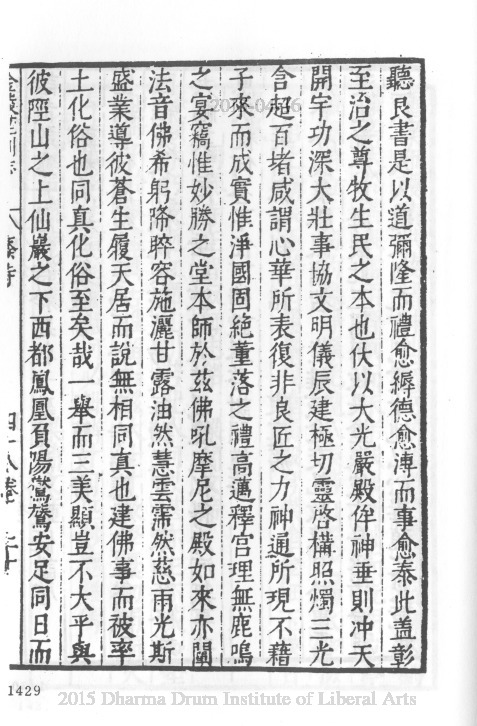 聽艮書是以道彌隆而禮愈縟德愈溥而事愈泰此盖彰
至治之尊牧生民之本也伏以大光嚴殿侔神垂則冲天
開宇功深大壯事協文明儀辰建極切靈啓構照燭三光
含超百堵咸謂心華所表復非良匠之力神通所現不藉
子來而成實惟淨國固絶董落之禮高邁釋宮理無鹿鳴
之宴竊惟妙勝之堂本師於茲佛吼摩尼之殿如來亦闡
法音佛希躬降睟容施灑甘露油然慧雲霈然慈雨光斯
盛業導彼蒼生履天居而說無相同真也建佛事而被率
土化俗也同真化俗至矣哉一舉而三美顯豈不大乎與
彼陘山之上仙巖之下西都鳳凰負陽鸑鷟安足同日而
1429
2015 Dharma Drum Institute of Liberal Arts